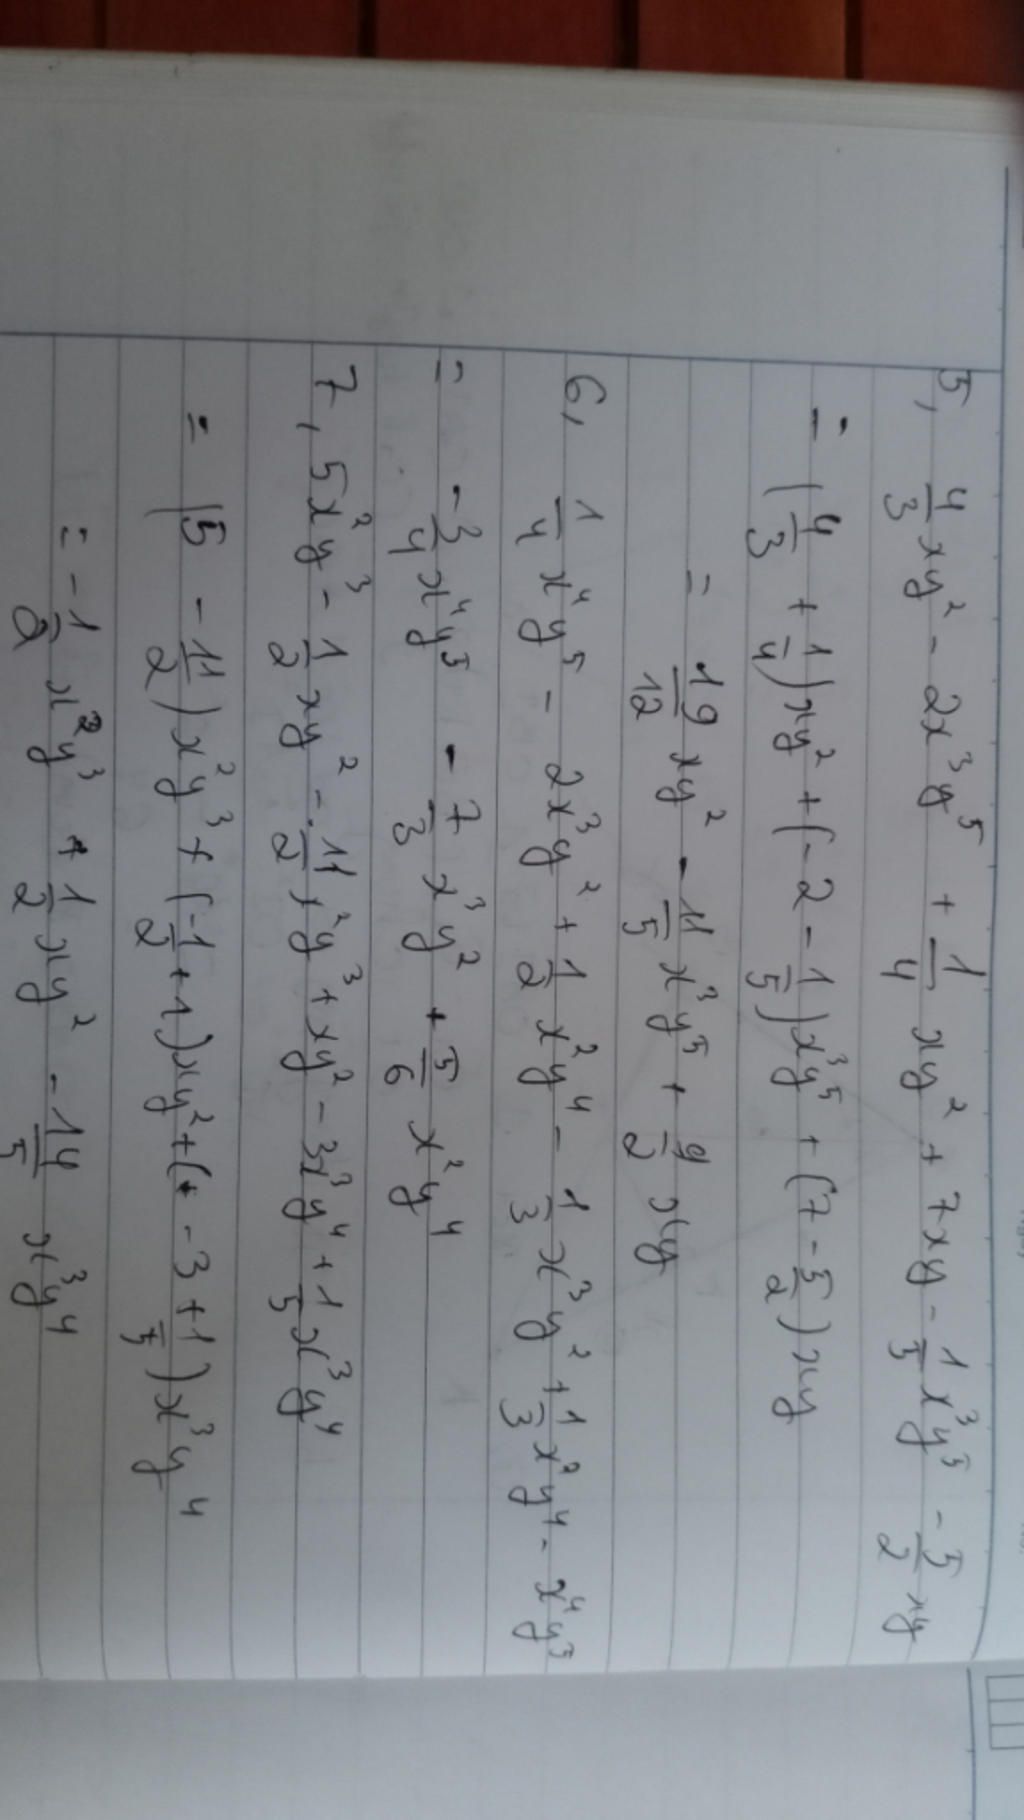 5, 4/3 xy² - 2x³y⁵ + 1/4 xy² + 7xy - 1/5 x³y⁵ - 5/2 xy
= (4/3 + 1/4)xy² + (-2 - 1/5)x³y⁵ + (7 - 5/2)xy
= 19/12 xy² - 11/5 x³y⁵ + 9/2 xy
6, 1/4 x⁴y⁵ - 2x³y² + 1/2 x²y⁴ - 1/3 x³y² + 1/3 x²y⁴ - x⁴y⁵
= -3/4 x⁴y⁵ - 7/3 x³y² + 5/6 x²y⁴
7, 5x²y³ - 1/2 xy² - 11/2 x²y³ + xy² - 3x³y⁴ + 1/5 x³y⁴
= (5 - 11/2)x²y³ + (-1/2 + 1)xy² + (-3 + 1/5)x³y⁴
= -1/2 x²y³ + 1/2 xy² - 14/5 x³y⁴